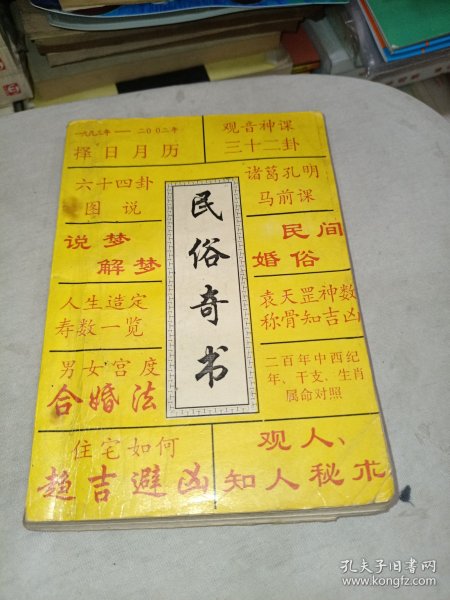 一九九三年—二00二年
择日月历
观音神课
三十二卦
六十四卦
图说
诸葛孔明
马前课
民俗奇书
说梦
解梦
民间
婚俗
人生造定
寿数一览
袁天罡神数
称骨知吉凶
男女宫度
合婚法
二百年中西纪
年、干支、生肖
属命对照
住宅如何
趋吉避凶
观人、
知人秘术
孔夫子旧书网
www.kongfz.com